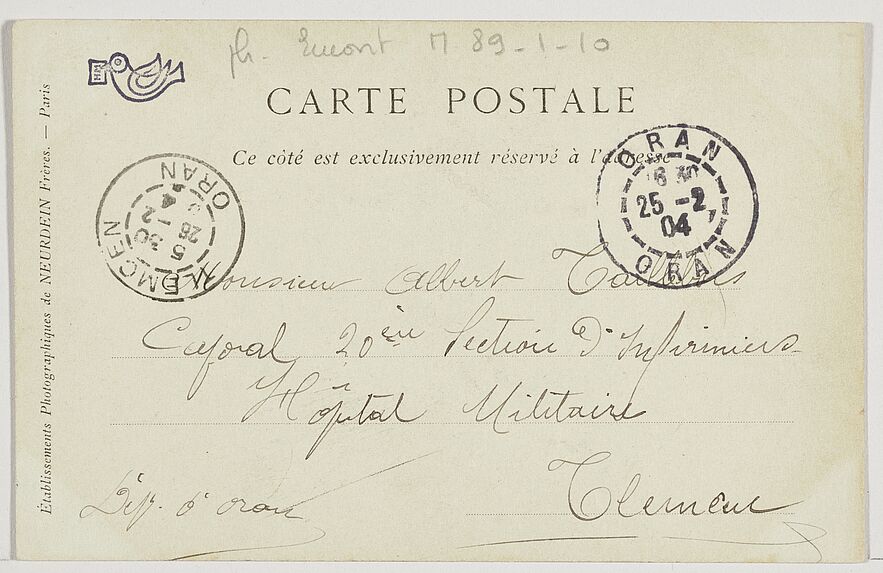 ph. Emont M 89-1-10
CARTE POSTALE
Ce côté est exclusivement réservé à l'adresse
Établissements Photographiques de NEURDEIN Frères. — Paris
ORAN
25 -2
04
ORAN
TLEMCEN
5 30
26 -2
04
ORAN
Monsieur Albert
Caporal 20ème Section d'Infirmiers
Hôpital Militaire
Tlemcen
Dép. d'Oran